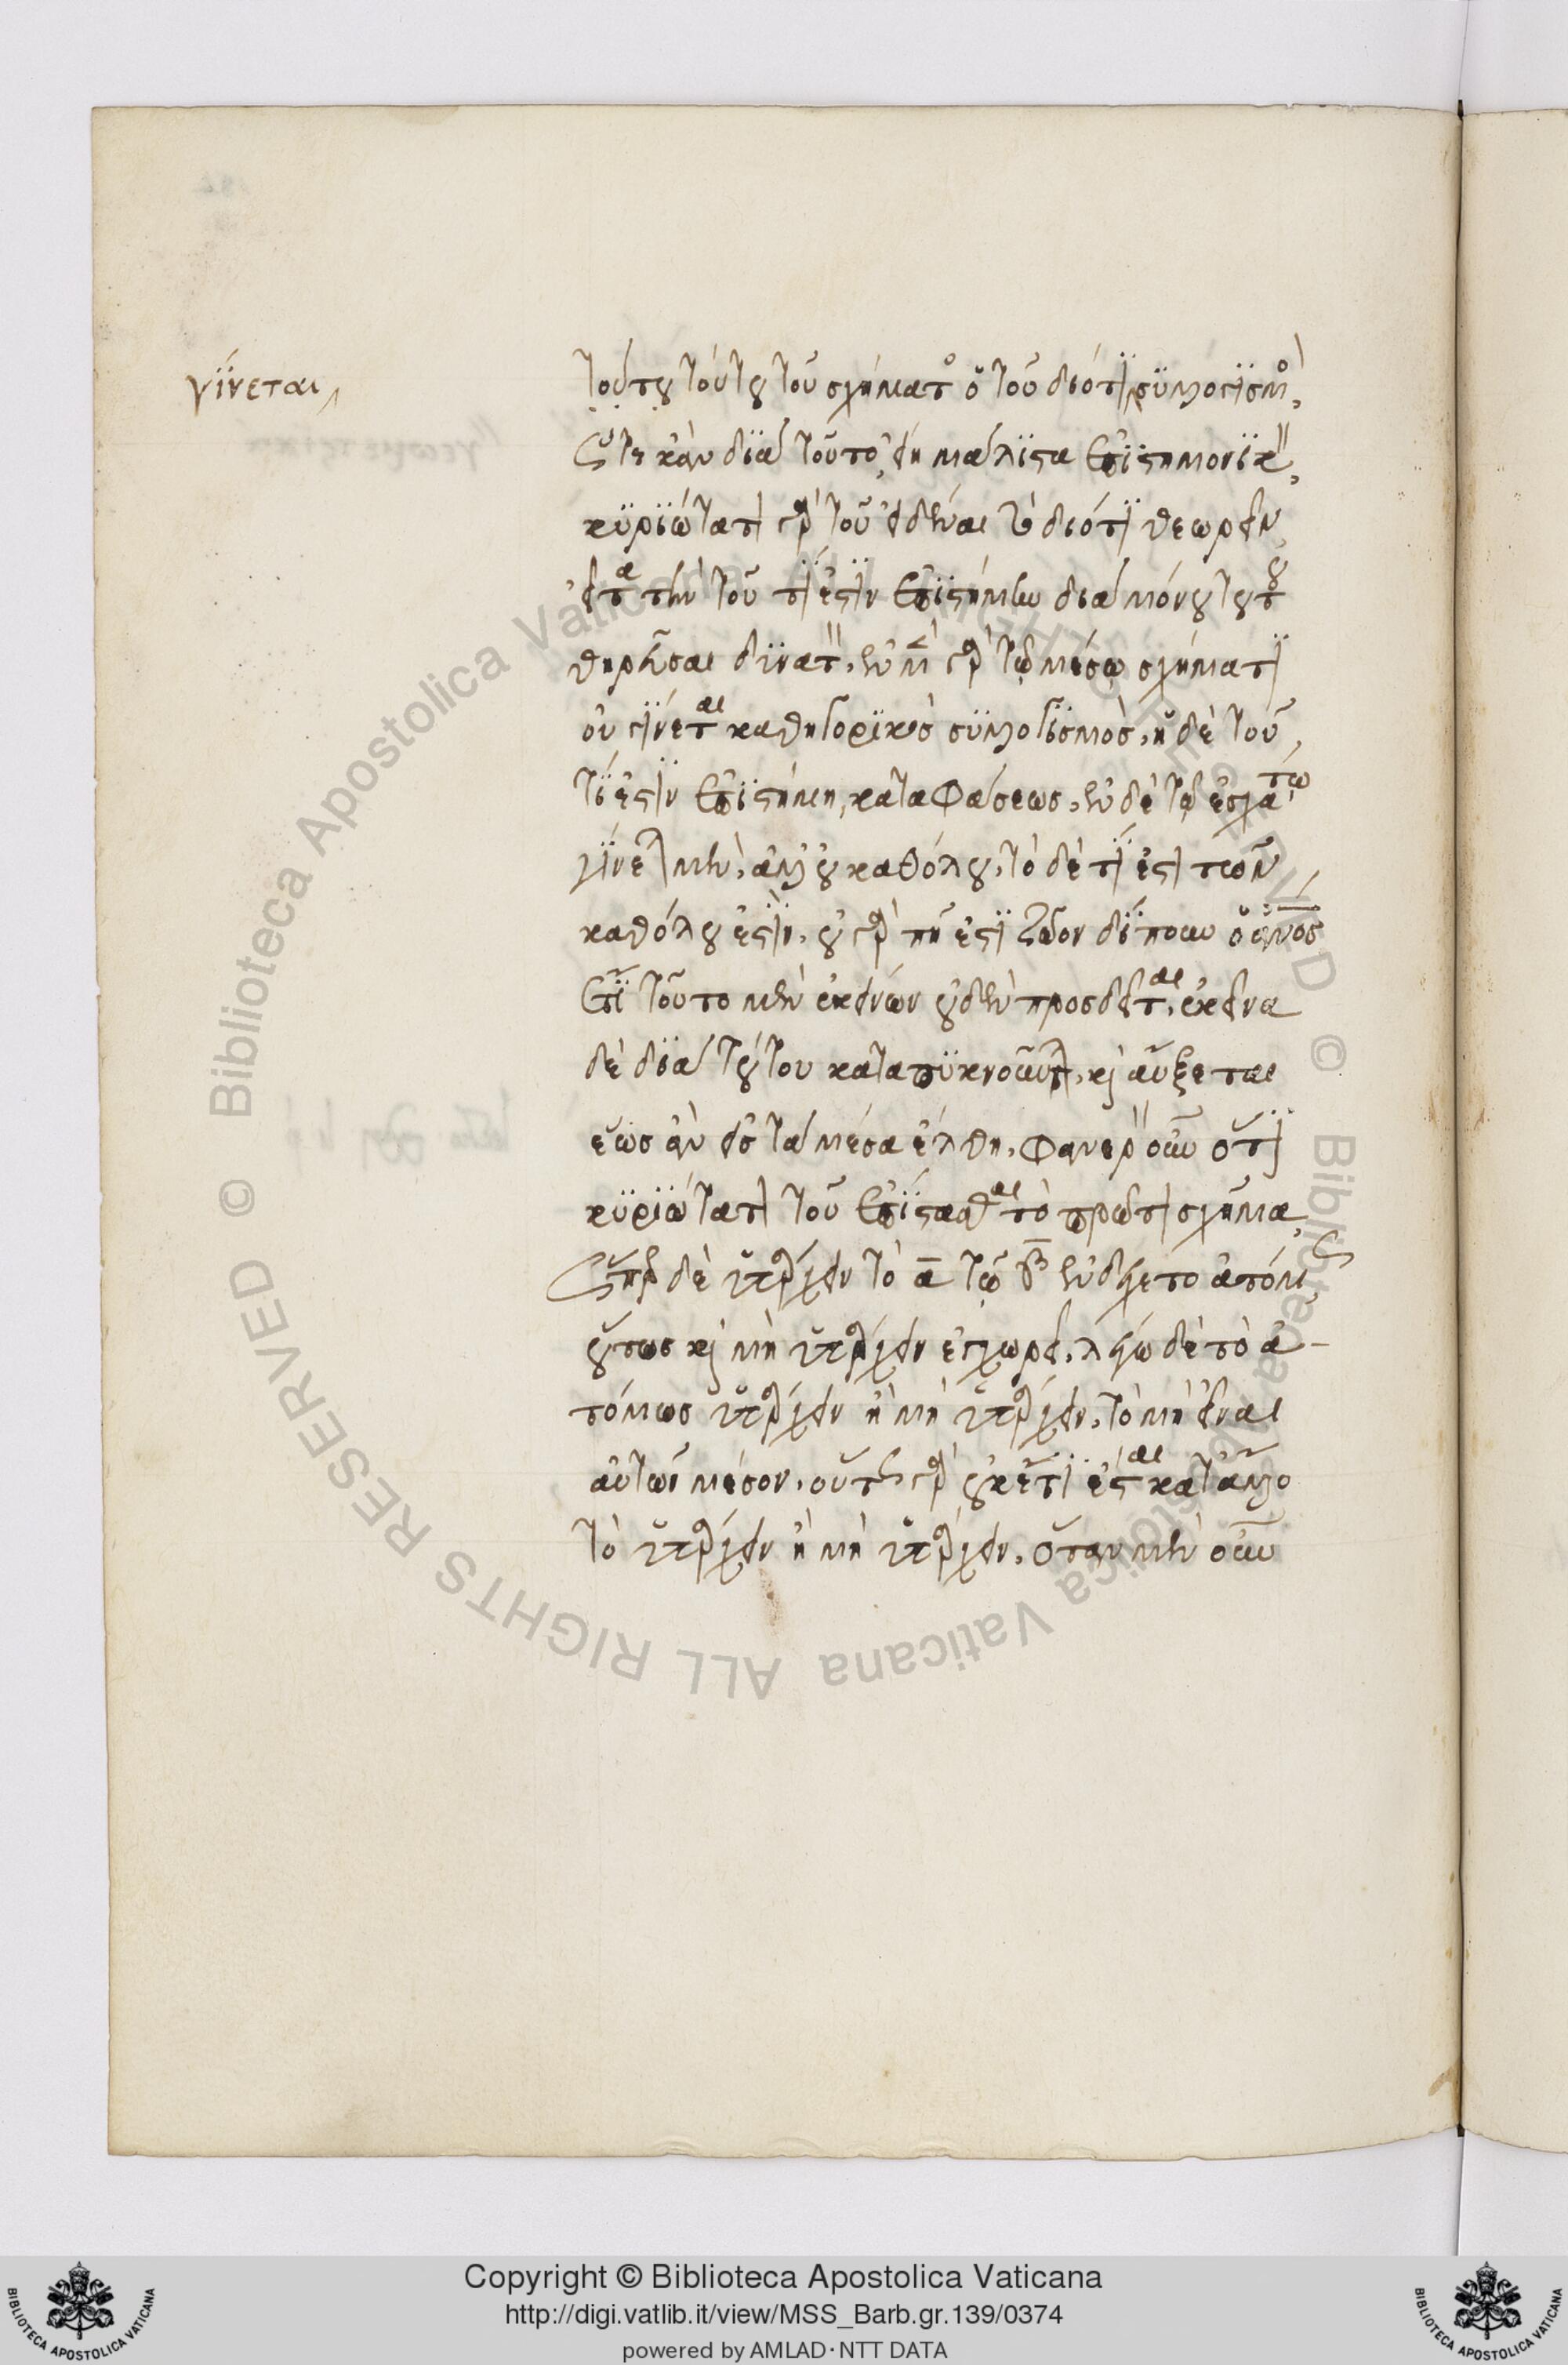 γίνεται
τούτου τοῦ σχήματος ὁ τοῦ διότι συλλογισμὸς
ὥστε κἂν διὰ τοῦτο εἴη μάλιστα ἐπιστημονικὸν
κυριώτατον γὰρ τοῦ εἰδέναι τὸ διότι θεωρεῖν
εἶτα τὴν τοῦ τί ἐστιν ἐπιστήμην διὰ μόνου τούτου
θηρᾶσαι δυνατόν, ἐν μὲν γὰρ τῷ μέσῳ σχήματι
οὐ γίνεται κατηγορικὸς συλλογισμὸς, ἡ δὲ τοῦ
τί ἐστιν ἐπιστήμη, καταφάσεως, ἐν δὲ τῷ ἐσχάτῳ
γίνεται μὲν, ἀλλ' οὐ καθόλου, τὸ δὲ τί ἐστι τῶν
καθόλου ἐστὶν, οὐ γὰρ πῆ ἐστι ζῷον δίπουν ὁ ἄνος
ἔτι τοῦτο μὲν ἐκείνων οὐδὲν προσδεῖται, ἐκεῖνα
δὲ διὰ τούτου καταπυκνοῦται, καὶ αὔξεται
ἕως ἂν εἰς τὰ μέσα ἔλθη, φανερὸν οὖν ὅτι
κυριώτατον τοῦ ἐπίστασθαι τὸ πρῶτον σχῆμα
ὥσπερ δὲ ὑπάρχειν τὸ α τῷ β ἐνεδέχετο ἀτόμως
οὕτως καὶ μὴ ὑπάρχειν ἐγχωρεῖ, λέγω δὲ τὸ ἀ-
τόμως ὑπάρχειν ἢ μὴ ὑπάρχειν, τὸ μὴ εἶναι
αὐτῶν μέσον, οὕτως γὰρ οὐκέτι ἔσται κατ' ἄλλο
τὸ ὑπάρχειν ἢ μὴ ὑπάρχειν, ὅταν μὲν οὖν
Copyright © Biblioteca Apostolica Vaticana
http://digi.vatlib.it/view/MSS_Barb.gr.139/0374
powered by AMLAD·NTT DATA